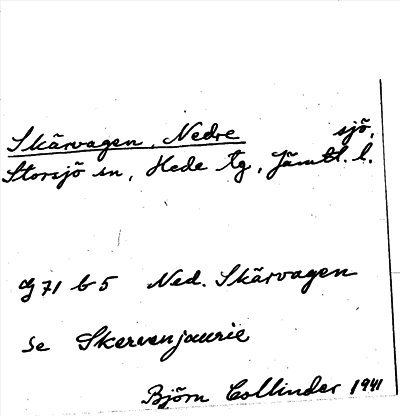 Skärvagen, Nedre sjö,
Storsjö sn, Hede tg, Jämtl. l.
G 71 b 5 Ned. Skärvagen
se Skervenjaurie
Björn Collinder 1941